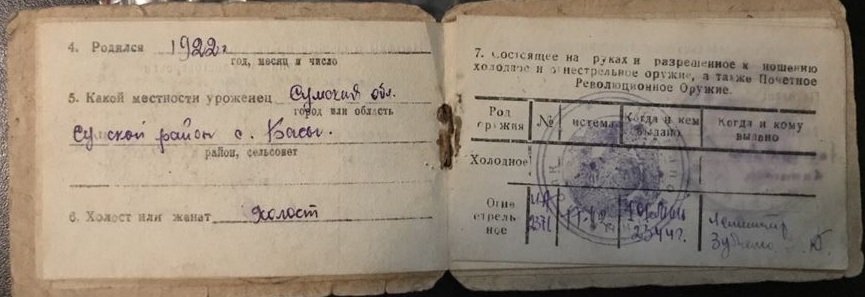 4. Родился 1922 г
год, месяц и число
5. Какой местности уроженец Сумская обл.
город или область
Сумской район с. Басы.
район, сельсовет
6. Холост или женат холост
7. Состоящее на руках и разрешенное к ношению
холодное и огнестрельное оружие, а также Почетное
Революционное Оружие.
Род оружия № Система Когда и кем выдано Когда и кому выдано
Холодное
Огнестрельное